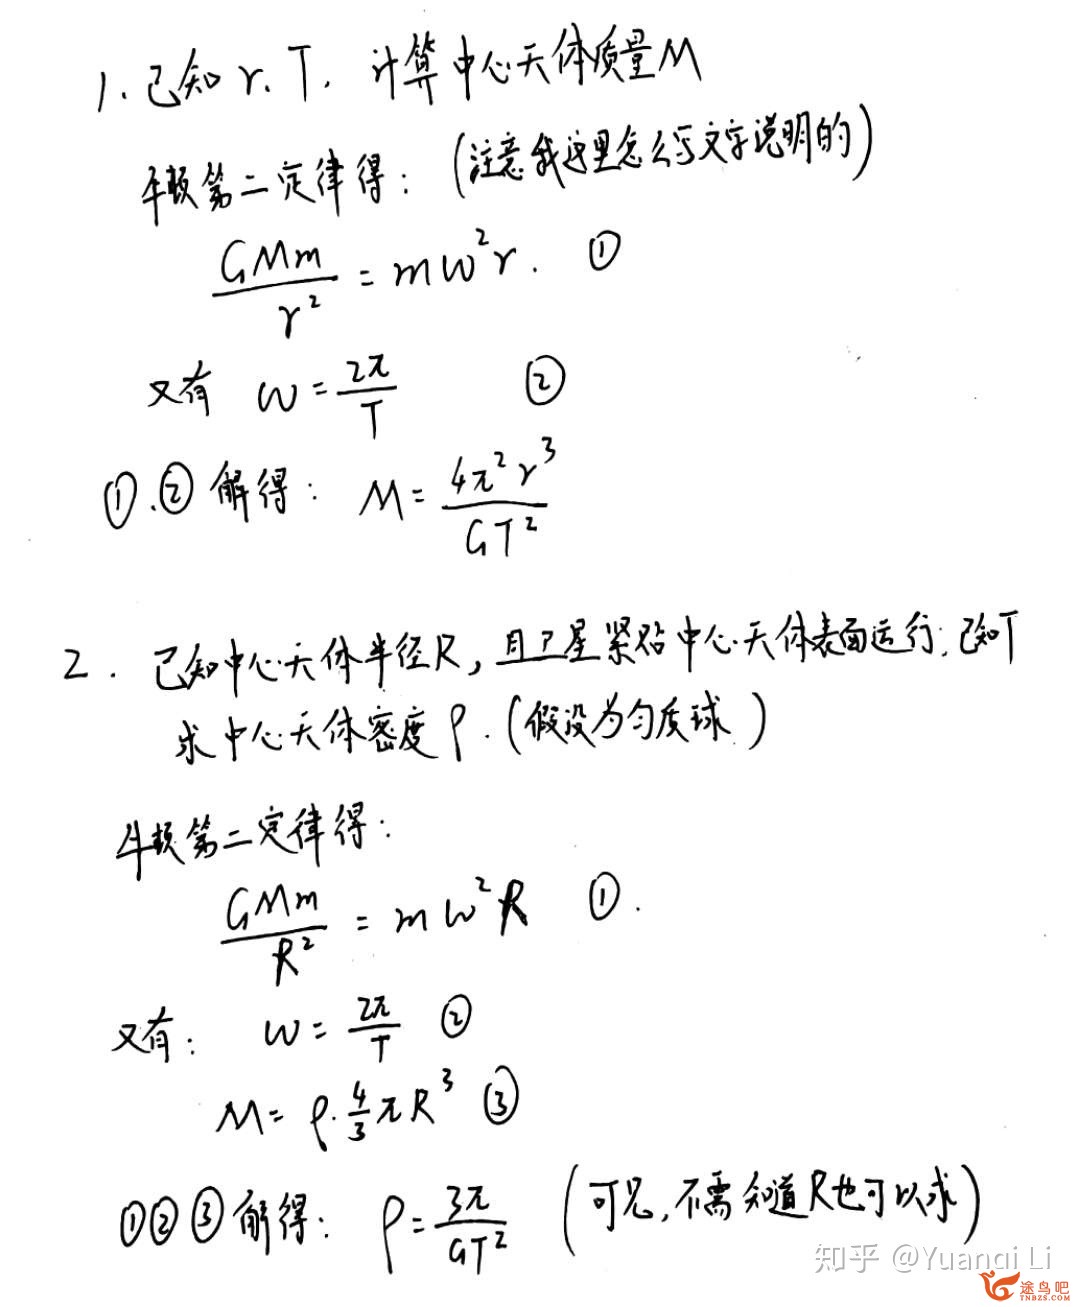 1. 已知 r. T. 计算中心天体质量M
牛顿第二定律得：(注意我这里怎么写文字说明的)
GMm/r² = mω²r. ①
又有 ω = 2π/T ②
①.② 解得： M = 4π²r³/GT²
2. 已知中心天体半径R, 且卫星紧贴中心天体表面运行, 已知T
求中心天体密度ρ. (假设为匀质球.)
牛顿第二定律得：
GMm/R² = mω²R ①.
又有： ω = 2π/T ②
M = ρ·4/3πR³ ③
①②③解得： ρ = 3π/GT² (可见, 不需知道R也可以求)
知乎 @Yuanqi Li
途鸟吧
TNBZS.COM